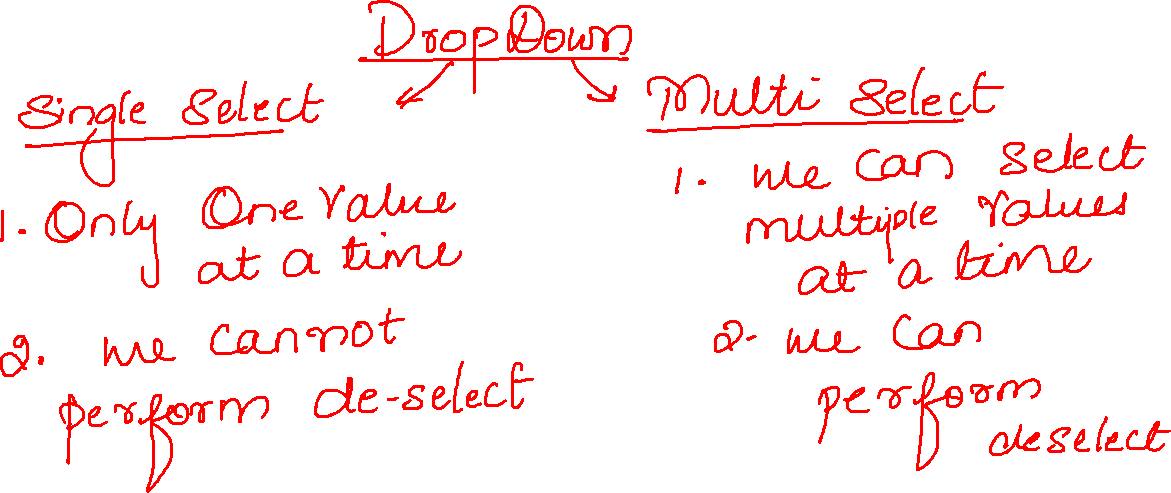 DropDown
Single Select
1. Only One Value
at a time
2. we cannot
perform de-select
Multi Select
1. we can select
multiple values
at a time
2. we can
perform
deselect